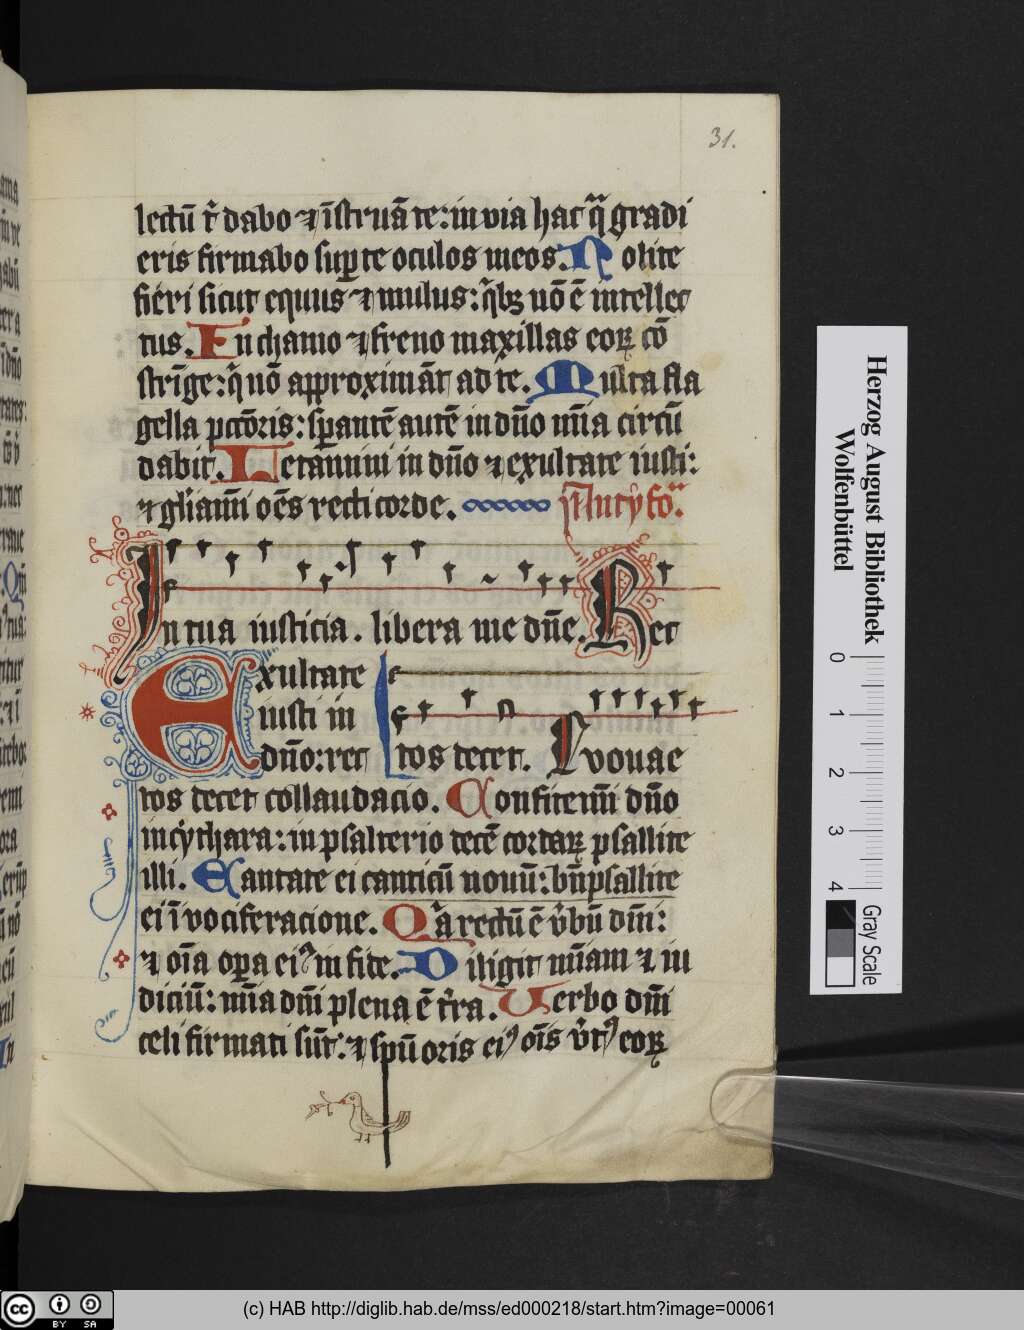 31.
lectū t̄ dabo ⁊ īstruā te: in via hac q̄ gradi
eris firmabo sup̱ te oculos meos. Nolite
fieri sicut equus ⁊ mulus: q̇bꝫ nō ē intellec
tus. In chamo ⁊ freno maxillas eoꝝ cō
strīge: q̇ nō approximāt ad te. Multa fla
gella pctōris: sp̱antē autē in dn̄o mīa circū
dabit. Letamini in dn̄o ⁊ exultate iusti:
⁊ gl̄iamī oēs recti corde.
In tua iusticia. libera me dn̄e. Rec
Exultate
iusti in
dn̄o: rec tos decet. Euouae
tos decet collaudacio. Confitemī dn̄o
in cythara: in psalterio decē cordaꝝ psallite
illi. Cantate ei canticū nouū: bn̄ psallite
ei ī vociferacione. Qa rectū ē v̄bū dn̄i:
⁊ oīa op̱a eiꝰ in fide. Diligit mīam ⁊ iu
diciū: mīa dn̄i plena ē t̄ra. Verbo dn̄i
celi firmati sūt: ⁊ spū oris eiꝰ oīs v̄tꝰ eoꝝ
Herzog August Bibliothek
Wolfenbüttel
0 1 2 3 4
Gray Scale
cc BY SA
(c) HAB http://diglib.hab.de/mss/ed000218/start.htm?image=00061